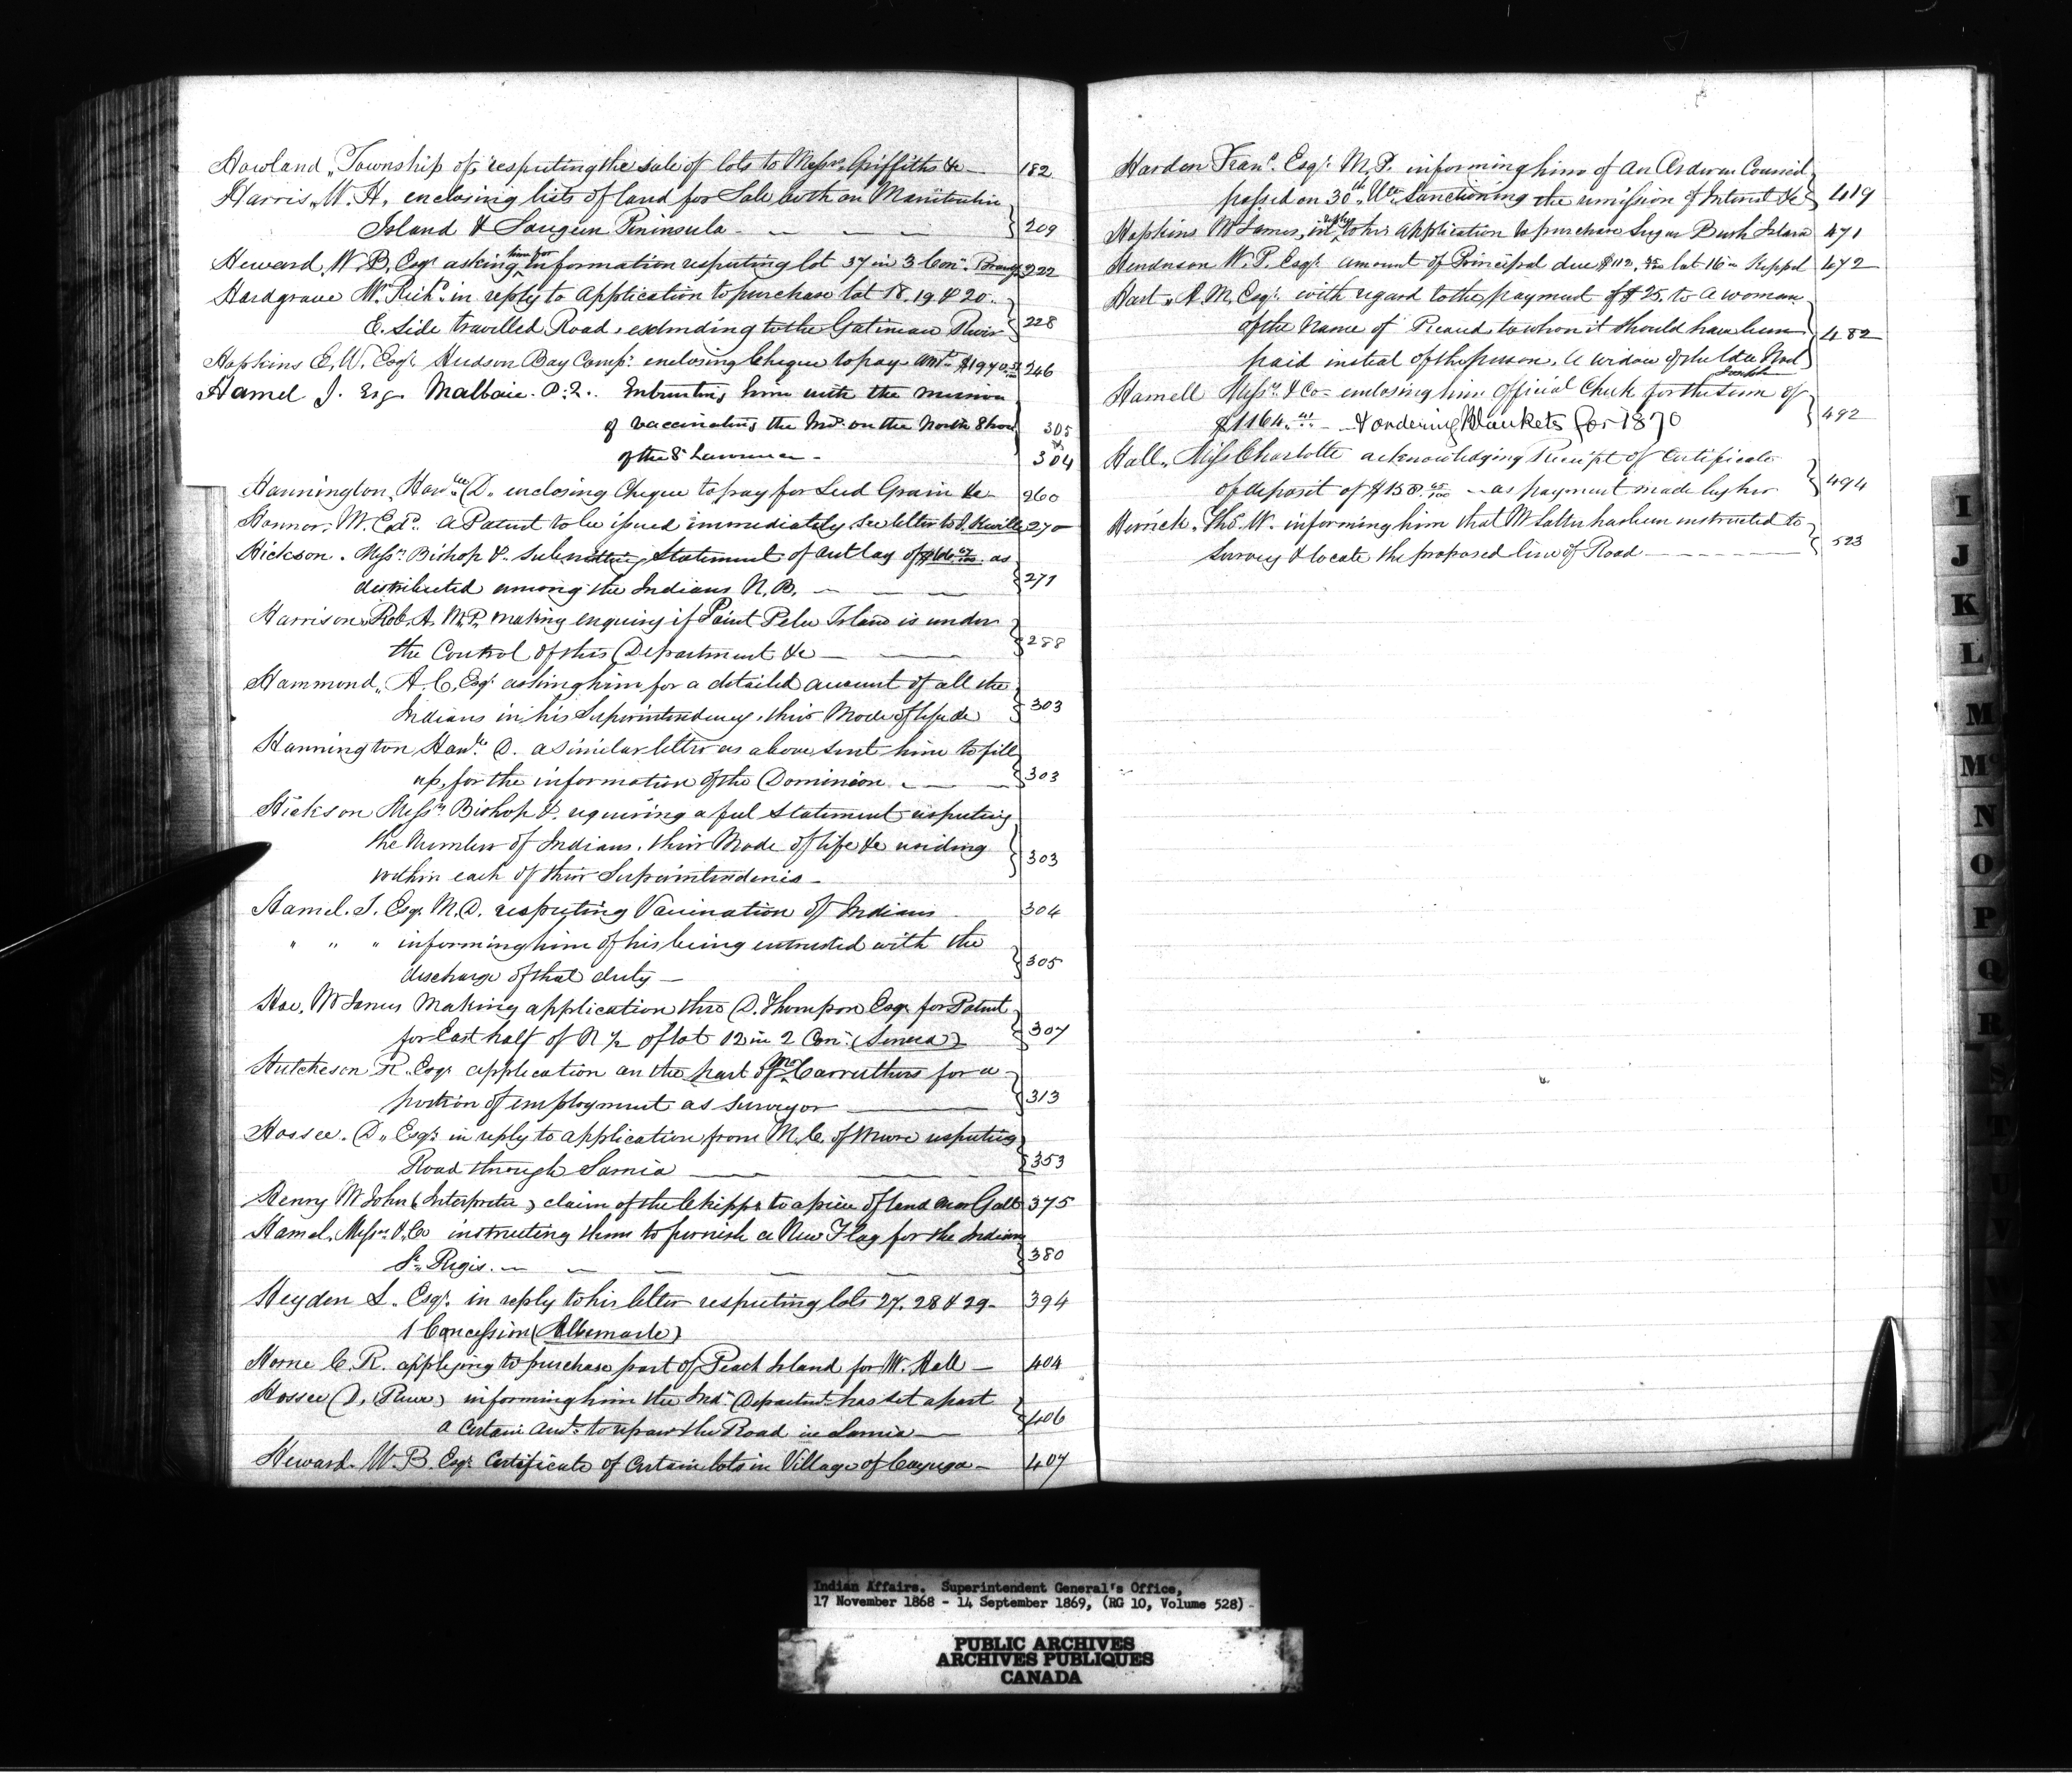 Howland, Township of, respecting the sale of lots to Messrs Griffiths &c — 182
Harris, W. H. enclosing lists of land for Sale both on Manitoulin
Island & Saugeen Peninsula — 209
Heward, W. B, Esqr asking him for information respecting lot 37 in 3 Con. 222
Hardgrave Mr Richd in reply to Application to purchase lot 18. 19. & 20.
E. Side travelled Road, extending to the Gatineau River 228
Hopkins E. W. Esqr Hudson Bay Compy enclosing Cheque to pay Amt $1940 246
Hamel J. Esq. Malbaie. P.Q. Entrusting him with the mission
of vaccinating the Inds on the North Shore 305
of the St Lawrence — & 304
Hannington, Honble D. enclosing Cheque to pay for Seed Grain &c 260
Hannor, W. Edd. A Patent to be issued immediately see letter to 270
Hickson. Messrs Bishop &. Submitting Statement of outlay of as
distributed among the Indians N.B. — 271
Harrison, Rob. A. M.P. making enquiry if Point Pelee Island is under
the Control of this Department &c — 288
Hammond, A. C, Esqr asking him for a detailed account of all the
Indians in his Superintendency, their Mode of life &c 303
Hannington Honble D. a similar letter as above sent him to fill
up, for the information of the Dominion — 303
Hickson Messrs Bishop &. requiring a full Statement respecting
the Number of Indians, their Mode of life &c residing
within each of their Superintendencies — 303
Hamel. J. Esqr M.D. respecting Vaccination of Indians 304
" " " informing him of his being entrusted with the
discharge of that duty — 305
Hoe, Mr James Making application thro D. Thompson Esqr for Patent
for East half of N ½ of lot 12 in 2 Con: (Seneca) 307
Hutcheson R. Esqr application on the part of Mr Carruthers for a
portion of employment as Surveyor — 313
Hossee. D, Esqr in reply to application from M. C. of Moore respecting
Road through Sarnia — 353
Henry Mr John (Interpreter) claim of the Chipps to a piece of land near Galt 375
Hamel, Messrs & Co instructing them to furnish a New Flag for the Indians
St Regis. — 380
Heyden L. Esqr. in reply to his letter respecting lots 27. 28 & 29 — 394
1 Concession (Albemarle)
Horne C. R. applying to purchase part of Peach Island for W. Hall — 404
Hossee (D, Reeve) informing him the Ind. Departmt has set apart
a certain Amt to repair the Road in Sarnia — 406
Heward. W. B. Esqr Certificate of Certain lots in Village of Cayuga — 407
Harden Franc. Esqr. M. P. informing him of An Order in Council
passed on 30th Ulto Sanctioning the remission of Interest &c 419
Hopkins Mr James, in reply to his Application to purchase Sugar Bush Island 471
Henderson W. P. Esqr. Amount of Principal due $112. lot 16 in Keppel 472
Hart, A. M. Esqr. with regard to the payment of $25. to a woman
of the Name of Picaud, to whom it should have been
paid instead of the person, a widow of the late Noel 482
Hamell Messrs & Co — enclosing him official Check for the sum of
$1164. — & ordering Blankets for 1870 492
Hall, Miss Charlotte acknowledging Receipt of Certificate
of deposit of $158 — as payment made by her 494
Herrick. Ths. W. informing him that Mr Salter has been instructed to
Survey & locate the proposed line of Road — 523
I
J
K
L
M
Mc
N
O
P
Q
R
S
T
U
V
Indian Affairs. Superintendent General's Office,
17 November 1868 - 14 September 1869, (RG 10, Volume 528)
PUBLIC ARCHIVES
ARCHIVES PUBLIQUES
CANADA